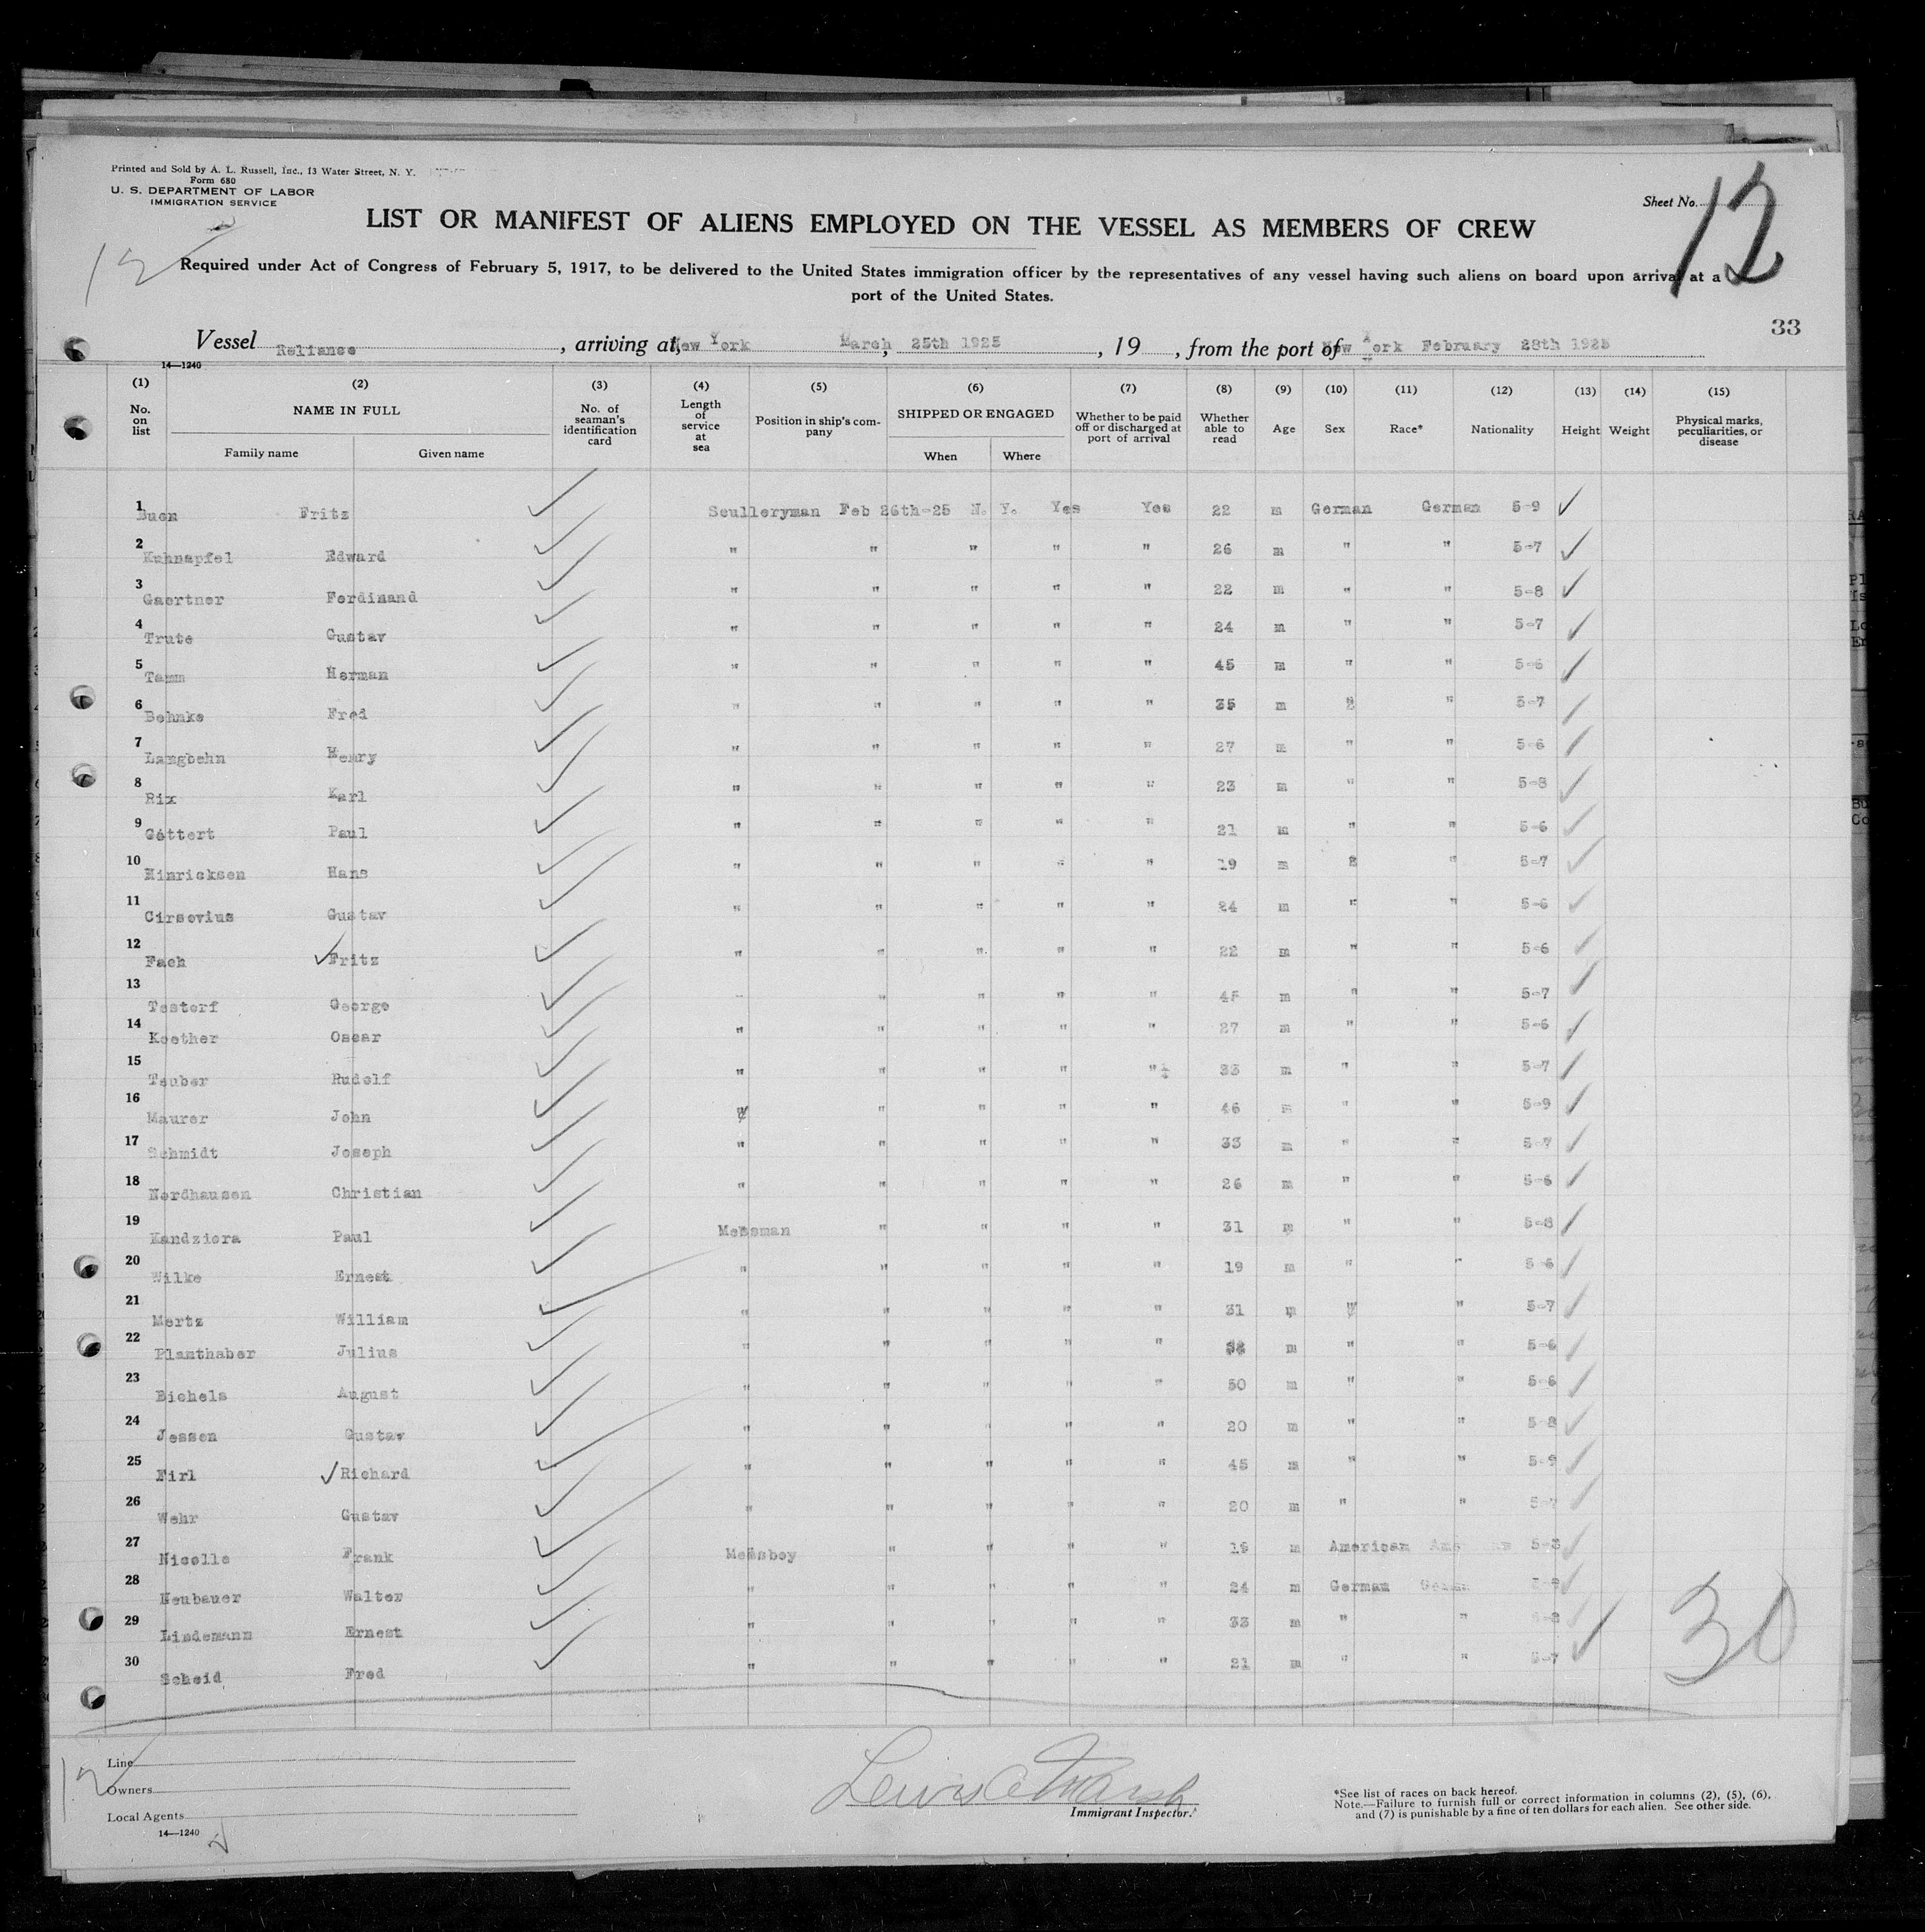 Printed and Sold by A. L. Russell, Inc., 13 Water Street, N. Y.
Form 680
U. S. DEPARTMENT OF LABOR
IMMIGRATION SERVICE
Sheet No. 12
12
LIST OR MANIFEST OF ALIENS EMPLOYED ON THE VESSEL AS MEMBERS OF CREW
Required under Act of Congress of February 5, 1917, to be delivered to the United States immigration officer by the representatives of any vessel having such aliens on board upon arrival at a
port of the United States.
33
Vessel Reliance, arriving at, New York March 25th 1925, 19 , from the port of New York February 28th 1925
14—1240
(1) (2) (3) (4) (5) (6) (7) (8) (9) (10) (11) (12) (13) (14) (15)
No. on list NAME IN FULL Family name Given name No. of seaman's identification card Length of service at sea Position in ship's company SHIPPED OR ENGAGED When Where Whether to be paid off or discharged at port of arrival Whether able to read Age Sex Race* Nationality Height Weight Physical marks, peculiarities, or disease
1 Buen Fritz Sculleryman Feb 26th-25 N. Y. Yes Yes 22 m German German 5-9
2 Kuhnapfel Edward " " " " " 26 m " " 5-7
3 Gaertner Ferdinand " " " " " 22 m " " 5-8
4 Trute Gustav " " " " " 24 m " " 5-7
5 Tamm Herman " " " " " 45 m " " 5-6
6 Behnke Fred " " " " " 35 m " " 5-7
7 Langbehn Henry " " " " " 27 m " " 5-6
8 Rix Karl " " " " " 23 m " " 5-8
9 Göttert Paul " " " " " 21 m " " 5-6
10 Hinricksen Hans " " " " " 19 m " " 5-7
11 Cirsovius Gustav " " " " " 24 m " " 5-6
12 Fach Fritz " " " " " 22 m " " 5-6
13 Testorf George " " " " " 45 m " " 5-7
14 Koether Oscar " " " " " 27 m " " 5-6
15 Tauber Rudolf " " " " " 33 m " " 5-7
16 Maurer John " " " " " 46 m " " 5-9
17 Schmidt Joseph " " " " " 33 m " " 5-7
18 Nordhausen Christian " " " " " 26 m " " 5-6
19 Kandziora Paul Messman " " " " 31 m " " 5-8
20 Wilke Ernest " " " " " 19 m " " 5-6
21 Mertz William " " " " " 31 m " " 5-7
22 Planthaber Julius " " " " " m " " 5-6
23 Eichels August " " " " " 50 m " " 5-6
24 Jessen Gustav " " " " " 20 m " " 5-8
25 Firl Richard " " " " " 45 m " " 5-9
26 Wehr Gustav " " " " " 20 m " " 5-7
27 Nicolle Frank Messboy " " " " 19 m American American 5-3
28 Neubauer Walter " " " " " 24 m German German
29 Lindemann Ernest " " " " " 33 m " " 5-8
30 Scheid Fred " " " " " 21 m " " 5-7
30
12
Line
Owners
Local Agents
14—1240
Immigrant Inspector.
*See list of races on back hereof.
Note.—Failure to furnish full or correct information in columns (2), (5), (6),
and (7) is punishable by a fine of ten dollars for each alien. See other side.